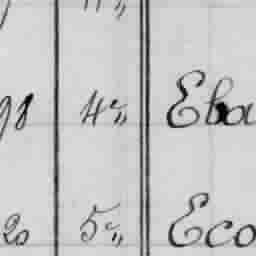 98 4°,, Eba
20 5°,, Eco